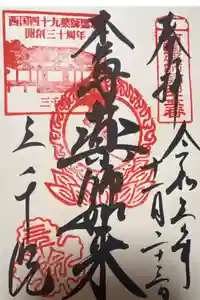 奉拝
令和三年
十一月二十三日
本尊
薬師如来
三千院
西国四十九薬師霊場
開創三十周年